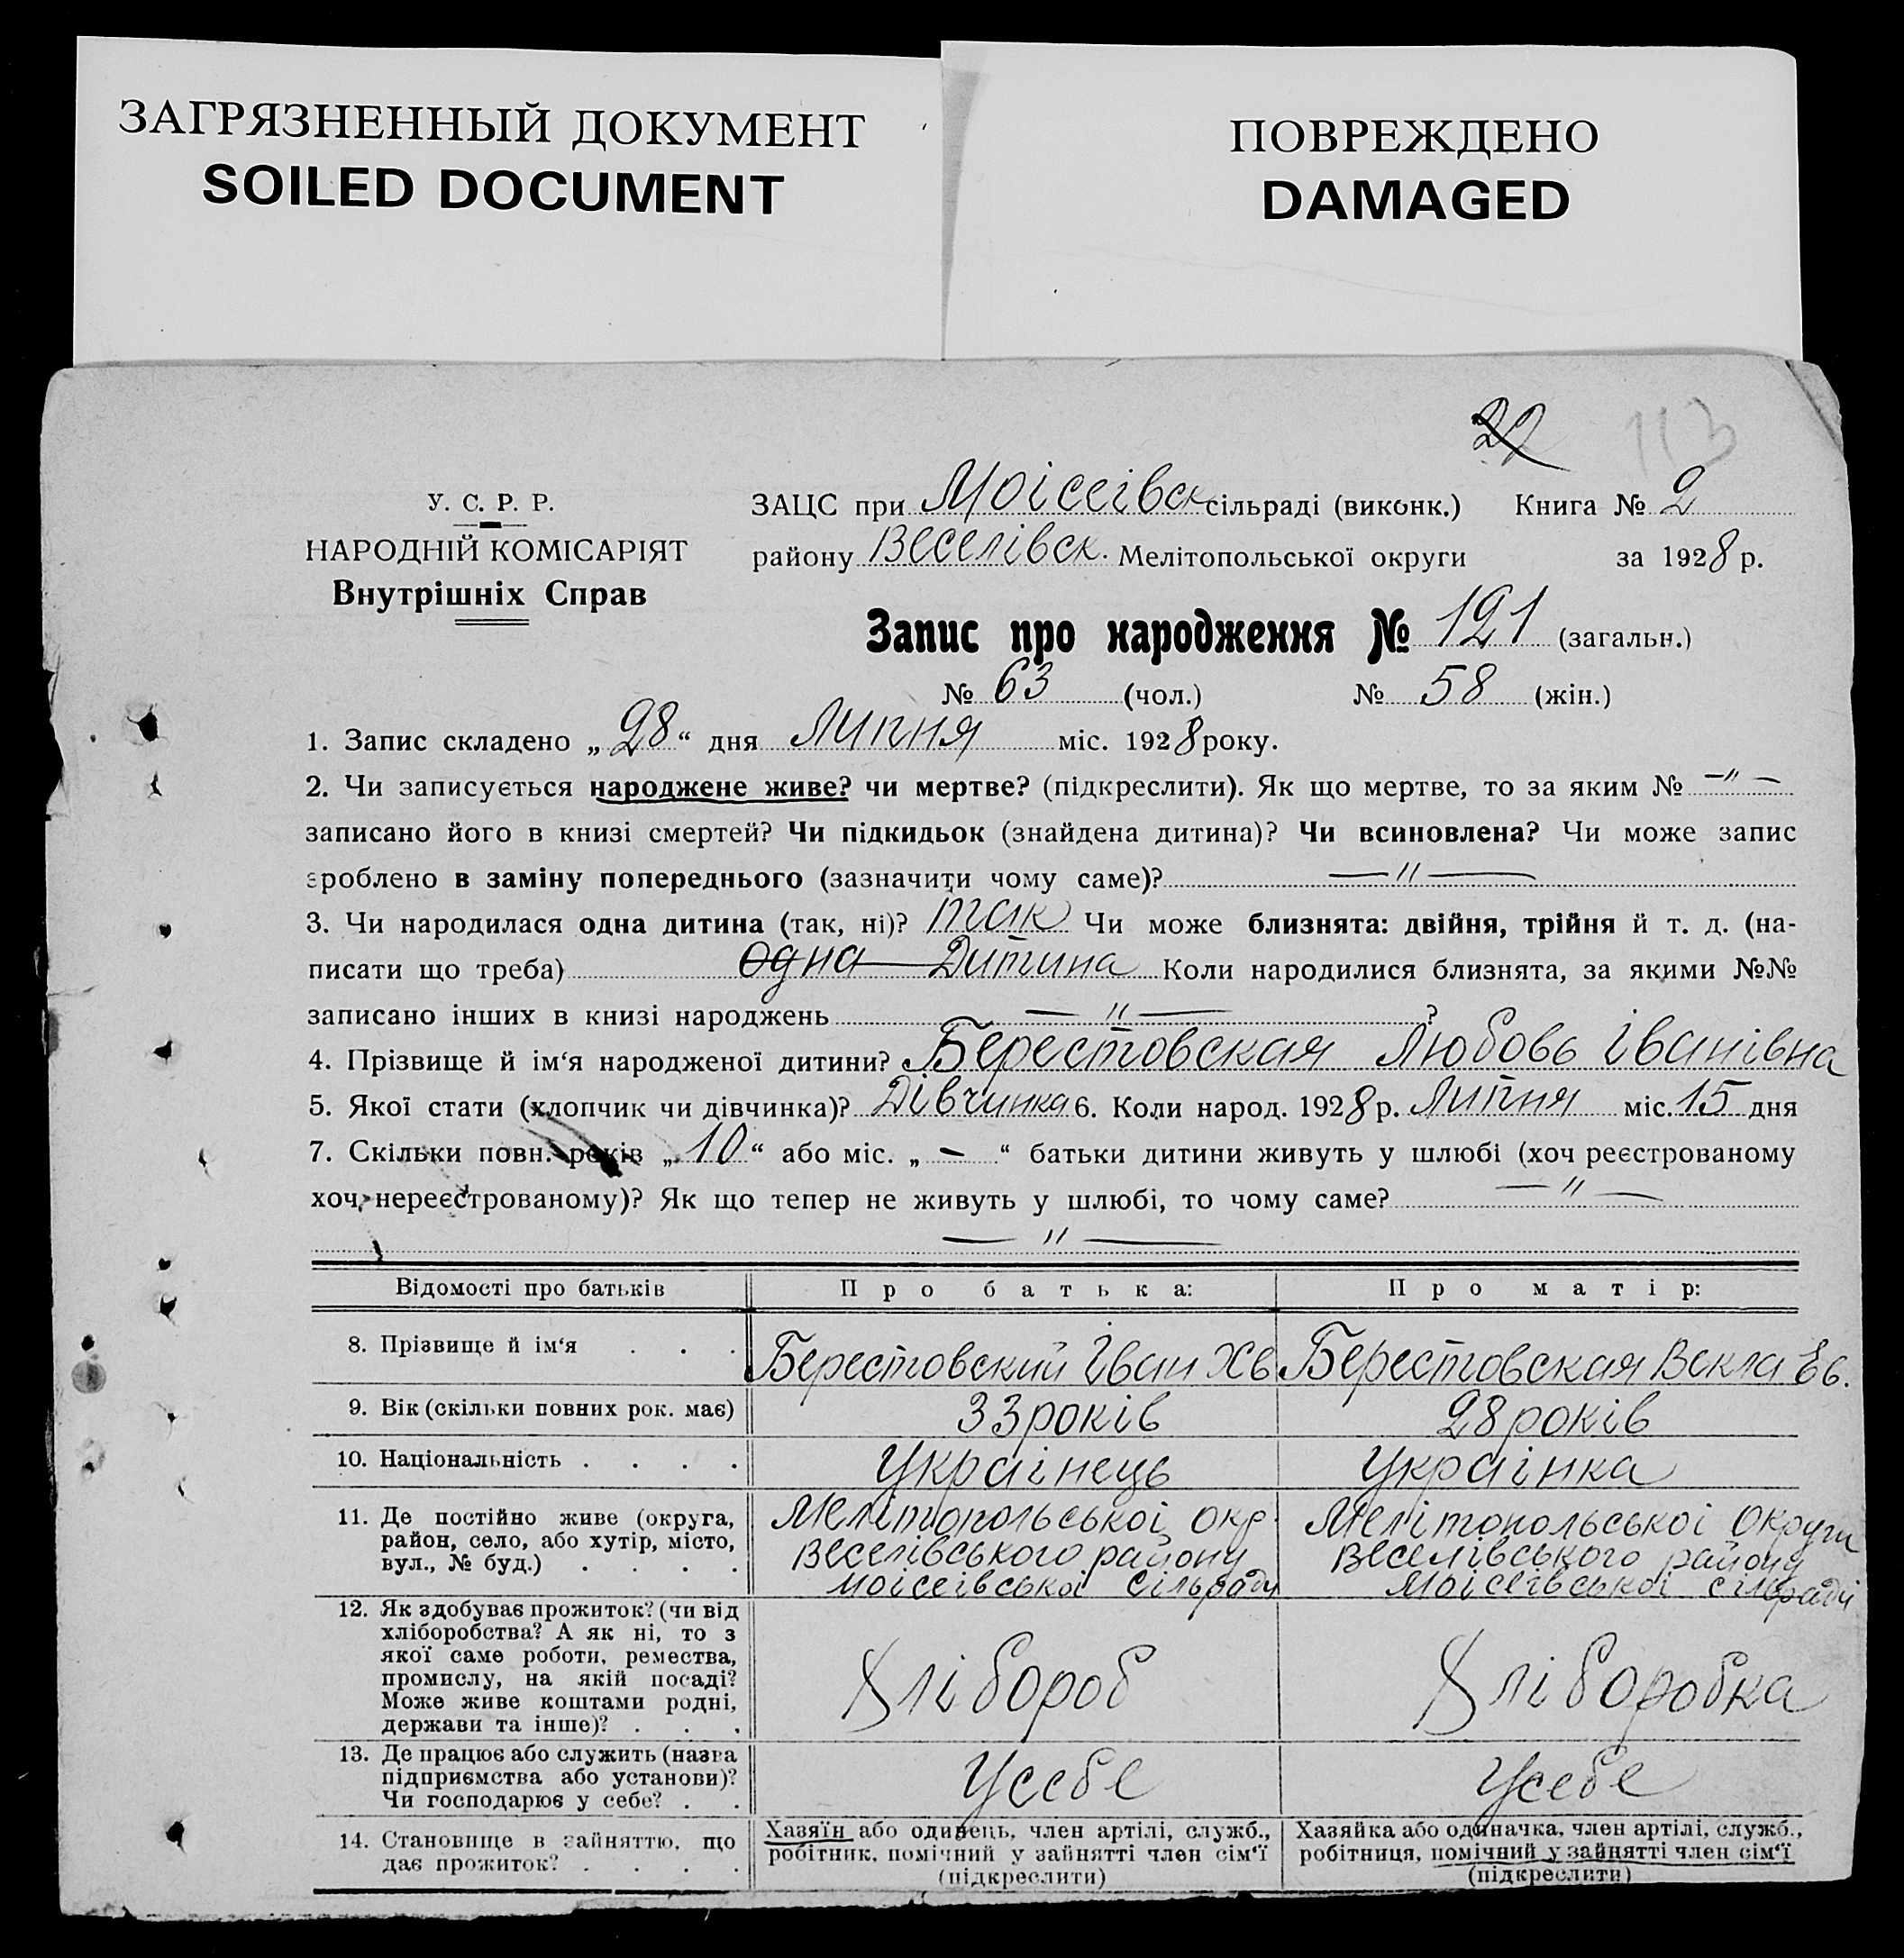 ЗАГРЯЗНЕННЫЙ ДОКУМЕНТ
SOILED DOCUMENT
ПОВРЕЖДЕНО
DAMAGED
113
У. С. Р. Р.
НАРОДНІЙ КОМІСАРІЯТ
Внутрішніх Справ
ЗАЦС при Моісеівск сільраді (виконк.) Книга № 2
району Веселівск. Мелітопольської округи за 1928 р.
Запис про народження № 121 (загальн.)
№ 63 (чол.) № 58 (жін.)
1. Запис складено „28“ дня Липня міс. 1928 року.
2. Чи записується народжене живе? чи мертве? (підкреслити). Як що мертве, то за яким № —"—
записано його в книзі смертей? Чи підкидьок (знайдена дитина)? Чи всиновлена? Чи може запис
зроблено в заміну попереднього (зазначити чому саме)? —"—
3. Чи народилася одна дитина (так, ні)? так Чи може близнята: двійня, трійня й т. д. (на-
писати що треба) одна Дитина Коли народилися близнята, за якими №№
записано інших в книзі народжень —"— ?
4. Прізвище й ім‘я народженої дитини? Берестовская Любовь Іванівна
5. Якої стати (хлопчик чи дівчинка)? Дівчинка 6. Коли народ. 1928 р. Липня міс. 15 дня
7. Скільки повн. років „10“ або міс. „—“ батьки дитини живуть у шлюбі (хоч реєстрованому
хоч нереєстрованому)? Як що тепер не живуть у шлюбі, то чому саме? —"—
—"—
Відомості про батьків Про батька: Про матір:
8. Прізвище й ім‘я . . . Берестовский Іван Хв Берестовская Векла Єв.
9. Вік (скільки повних рок. має) 33 років 28 років
10. Національність . . . . Украінець Украінка
11. Де постійно живе (округа,
район, село, або хутір, місто,
вул., № буд.) . . . .
Мелітопольськоі окр.
Веселівського району
Моісеівськоі сільради
Мелітопольськоі Округи
Веселівського району
Моісеівськоі сілради
12. Як здобуває прожиток? (чи від
хліборобства? А як ні, то з
якої саме роботи, ремества,
промислу, на якій посаді?
Може живе коштами родні,
держави та інше)? . . .
Хлібороб Хліборобка
13. Де працює або служить (назва
підприємства або установи)?
Чи господарює у себе? . .
Усебе Усебе
14. Становище в зайняттю, що
дає прожиток? . . . .
Хазяїн або одинець, член артілі, служб.,
робітник, помічний у зайнятті член сім‘ї
(підкреслити)
Хазяйка або одиначка, член артілі, служб.,
робітниця, помічний у зайнятті член сім‘ї
(підкреслити)